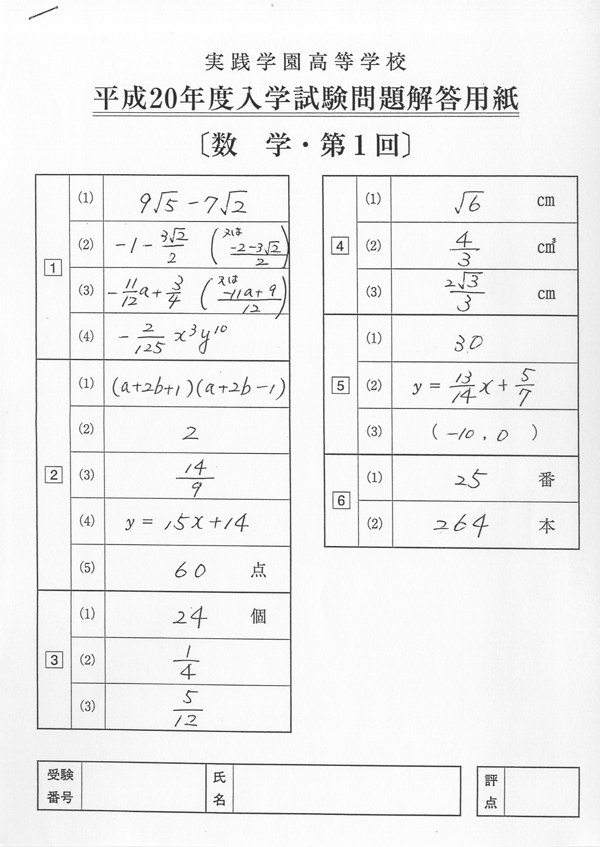 実践学園高等学校
平成20年度入学試験問題解答用紙
〔数 学・第1回〕
1
(1) 9√5 − 7√2
(2) −1 − 3√2/2 (又は −2−3√2/2)
(3) −11/12 a + 3/4 (又は −11a+9/12)
(4) −2/125 x³y¹⁰
2
(1) (a+2b+1)(a+2b−1)
(2) 2
(3) 14/9
(4) y = 15x+14
(5) 60 点
3
(1) 24 個
(2) 1/4
(3) 5/12
4
(1) √6 cm
(2) 4/3 cm³
(3) 2√3/3 cm
5
(1) 30
(2) y = 13/14 x + 5/7
(3) (−10, 0)
6
(1) 25 番
(2) 264 本
受験番号
氏名
評点